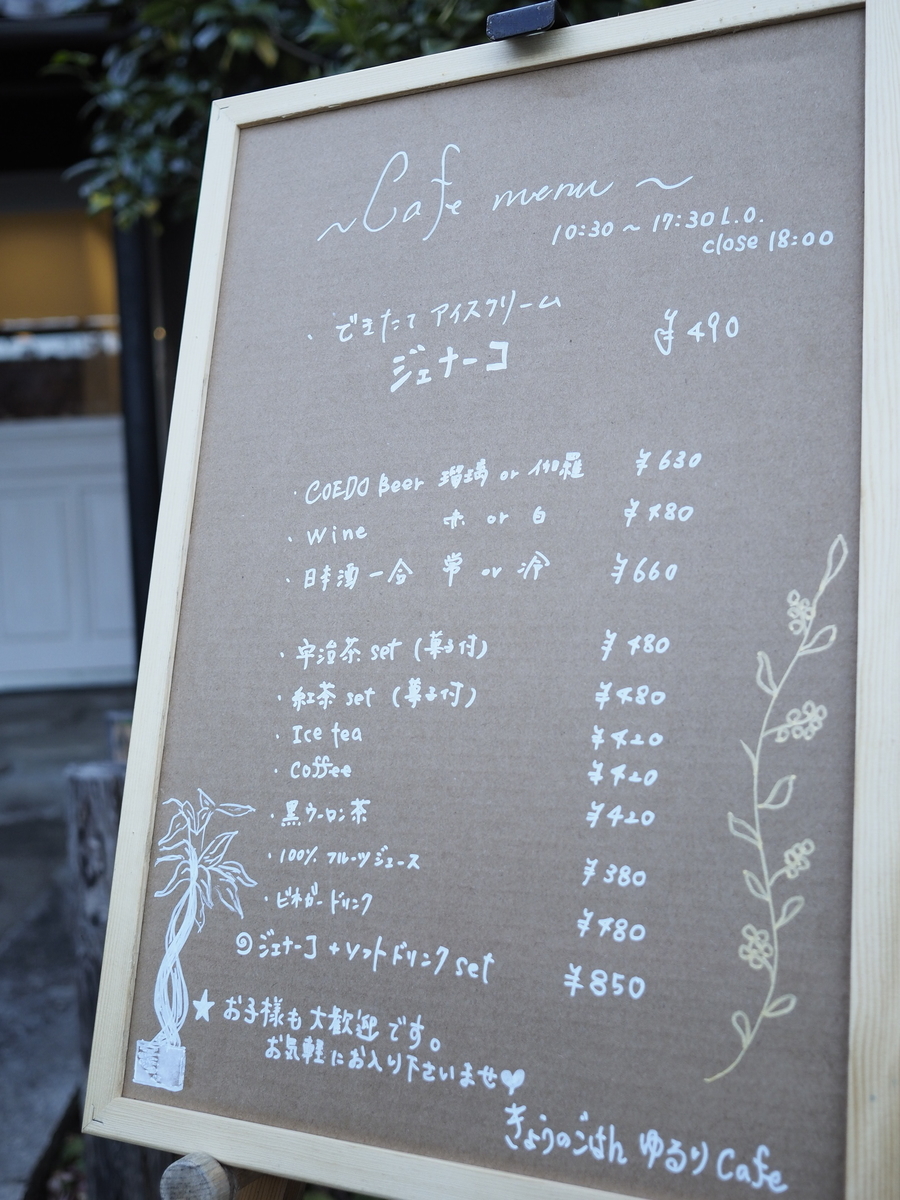 ~Cafe menu~
10:30~17:30 L.O.
close 18:00
・できたて アイスクリーム ¥490
ジェナーコ
・COEDO Beer 瑠璃 or 伽羅 ¥630
・Wine 赤 or 白 ¥480
・日本酒一合 常 or 冷 ¥660
・宇治茶 set (菓子付) ¥480
・紅茶 set (菓子付) ¥480
・Ice tea ¥420
・Coffee ¥420
・黒ウーロン茶 ¥420
・100% フルーツジュース ¥380
・ビネガードリンク ¥480
◎ジェナーコ + ソフトドリンク set ¥850
★お子様も大歓迎です。
お気軽にお入り下さいませ♥
きょうのごはん ゆるりCafe